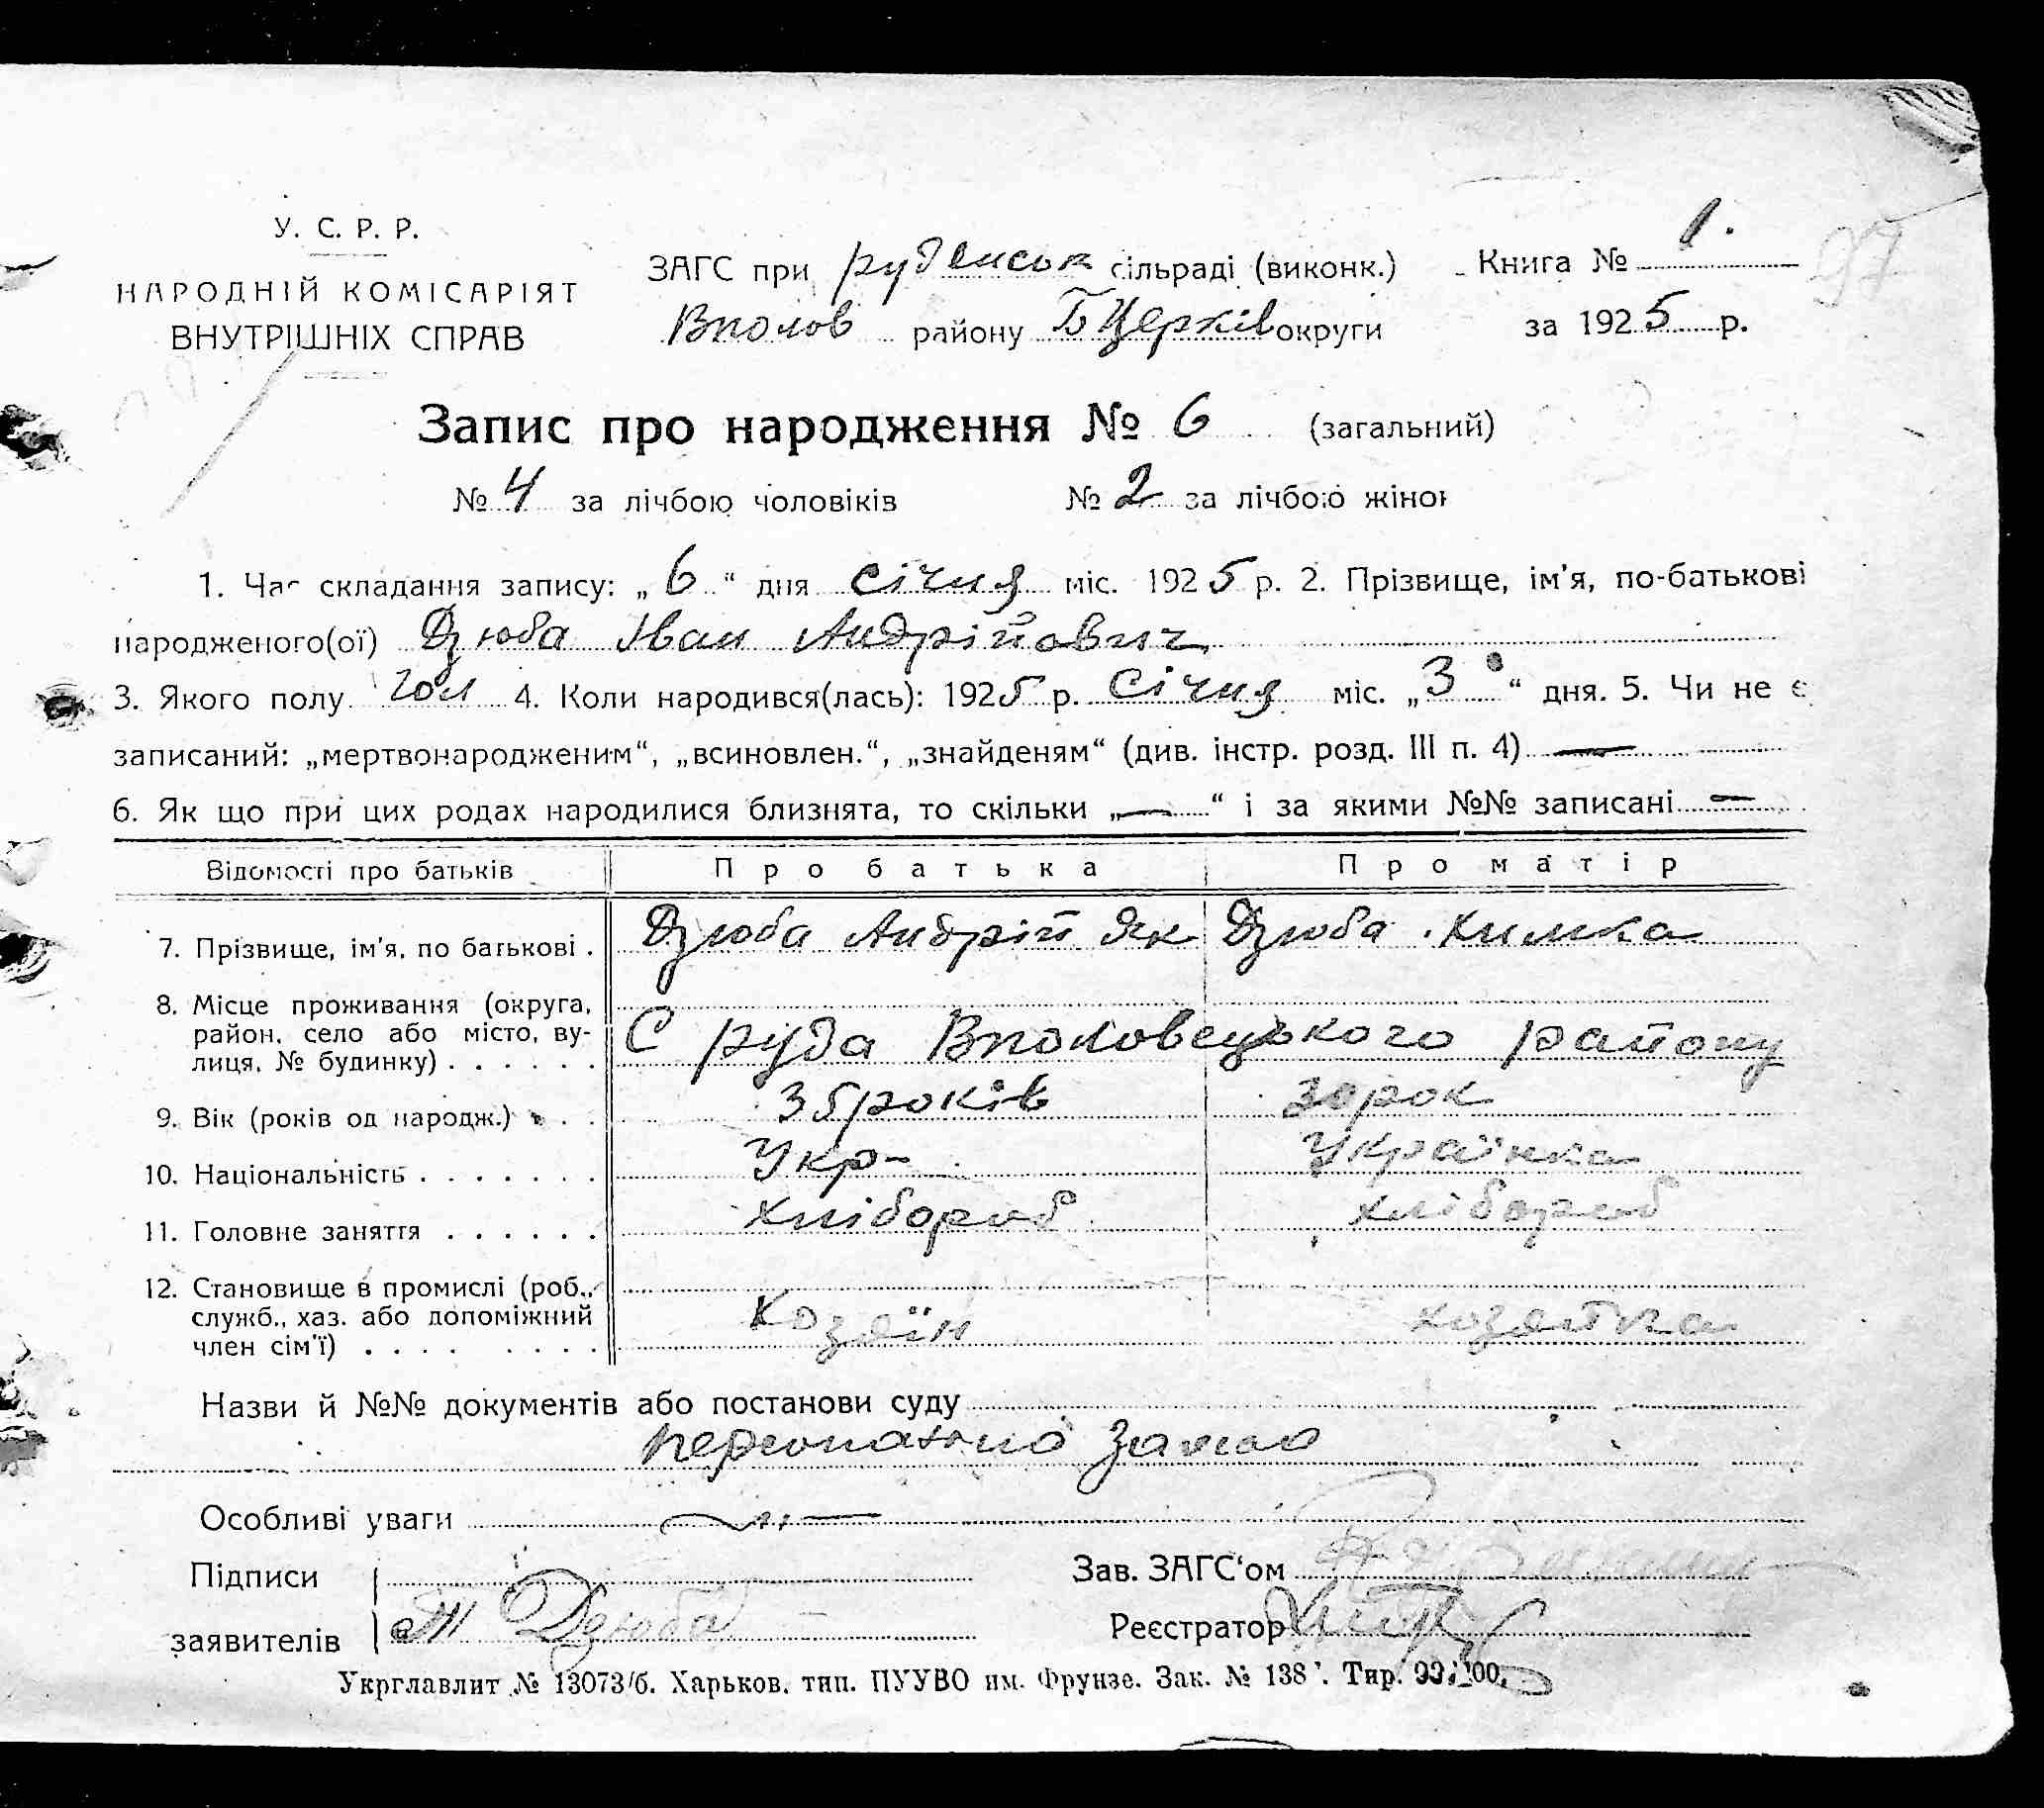 97
У. С. Р. Р.
НАРОДНІЙ КОМІСАРІЯТ
ВНУТРІШНІХ СПРАВ
ЗАГС при руденськ сільраді (виконк.)
Вполов району Б Церків округи
Книга № 1.
за 1925 р.
Запис про народження № 6 (загальний)
№ 4 за лічбою чоловіків № 2 за лічбою жінок
1. Час складання запису: „6“ дня січня міс. 1925 р. 2. Прізвище, ім'я, по-батькові
народженого(ої) Дзюба Іван Андрійович
3. Якого полу чол 4. Коли народився(лась): 1925 р. Січня міс. „3“ дня. 5. Чи не є
записаний: „мертвонародженим“, „всиновлен.“, „знайденям“ (див. інстр. розд. III п. 4) —
6. Як що при цих родах народилися близнята, то скільки „—“ і за якими №№ записані —
Відомості про батьків Про батька Про матір
7. Прізвище, ім'я, по батькові . Дзюба Андрій Як Дзюба Химка
8. Місце проживання (округа,
район, село або місто, ву-
лиця, № будинку) . . . . . . С руда Вполовецького району
9. Вік (років од народж.) . . 35 років 30 рок
10. Національність . . . . . . . Укр- Українка
11. Головне заняття . . . . . . Хлібороб хлібороб
12. Становище в промислі (роб.,
служб., хаз. або допоміжний
член сім'ї) . . . . . . . . Хозяїн хозяйка
Назви й №№ документів або постанови суду
персонально
Особливі уваги
Підписи
заявителів Дзюба
Зав. ЗАГС‘ом
Реєстратор
Укрглавлит № 13073/б. Харьков. тип. ПУУВО им. Фрунзе. Зак. № 138 . Тир.